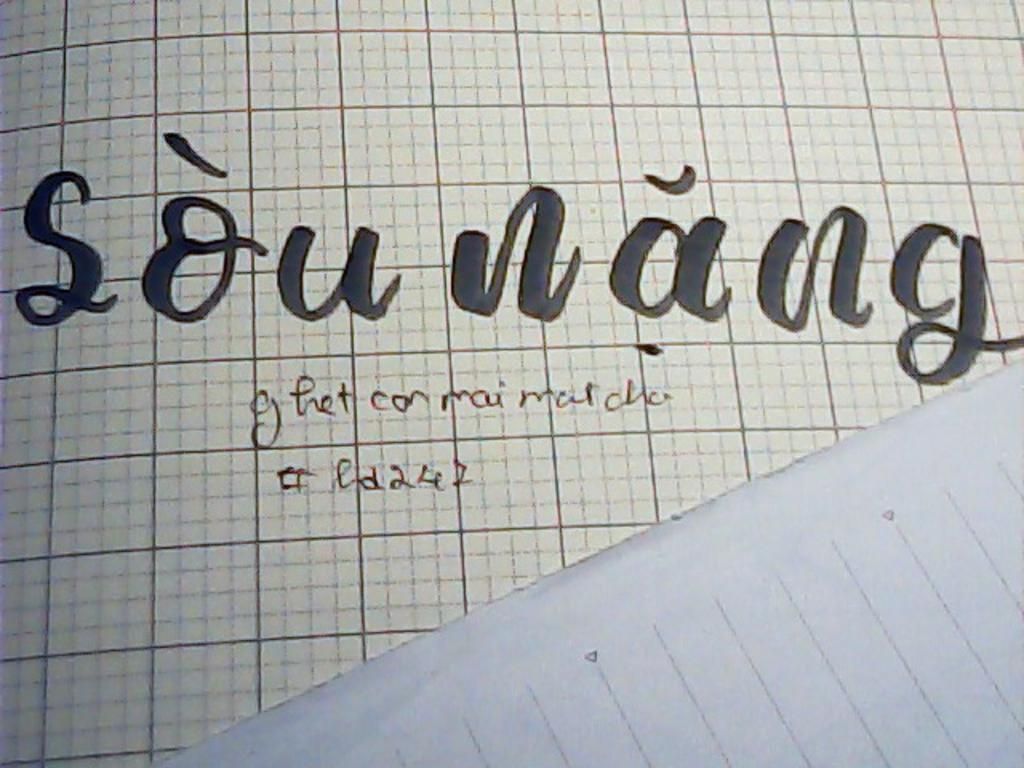 Sòu nặng
ghet con mai mai cha
# ld247